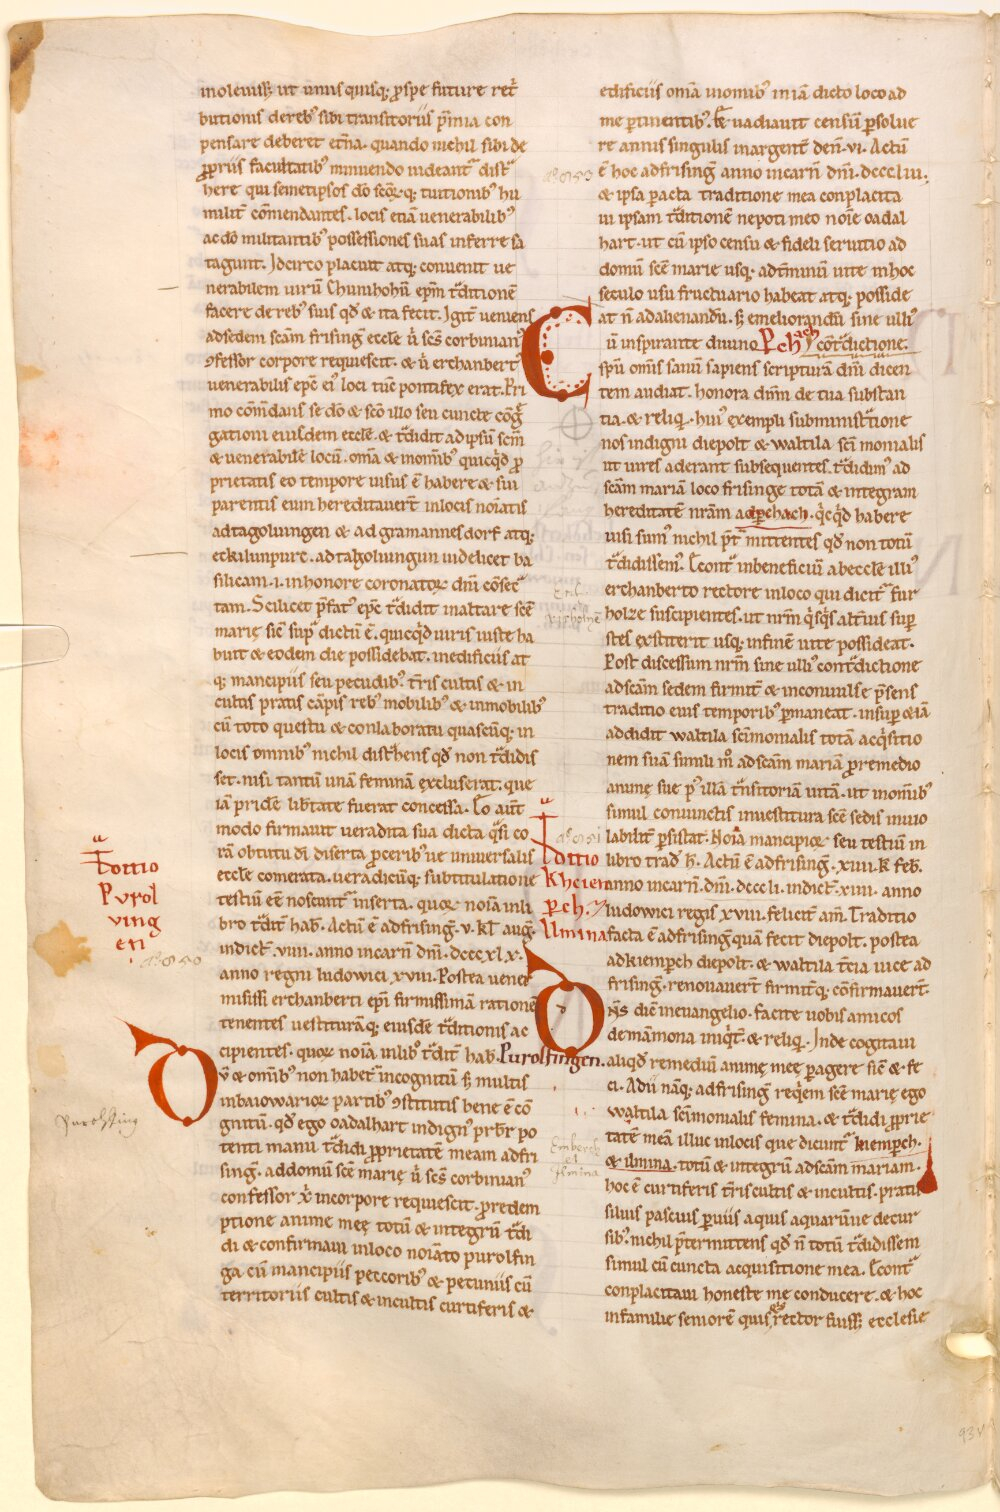 inoleuiss; ut unus quisq; ꝓspe future ret̄
butionis dereb᷒ sibi transitoriis p̄mia con
pensare deberet etn̄a. quando nichil sibi de
ꝓpriis facultatib᷒ minuendo uideant᷑ dist᷑
here qui semetipsos dō scōꝝq; tuitionib᷒ hu
milit̄ cōmendantes. locis etiā uenerabilib᷒
ac dō militantib᷒ possessiones suas inferre sa
tagunt. Idcirco placuit atq; conuenit ue
nerabilem uirū Chunihohū ep̄m t᷑ditionē
facere de reb᷒ suis qd̄ & ita fecit. Igit᷑ ueniens
adsedem scām frisinḡ eccłe ů sc̄s corbinian᷒
ꝯfessor corpore requiescit. & ů erchanbert᷒
uenerabilis ep̄c ei᷒ loci tūc pontifex erat. Pri
mo cōm̄dans se dō & scō illo seu cuncte cōg᷑
gationi eiusdem eccłe. & t᷑didit adipsū scm̄
& uenerabilē locū. om̄a & in om̄ib᷒ quicq̇d ꝓ
prietatis eo tempore uisus ē habere & sui
parentis eum hereditauer̄t inlocis noīatis
adtagoluingen & ad gramannesdorf atq;
eckilunpurc. ad tagoluingun uidelicet ba
silicam. i. in honore coronatoꝝ dn̄i cōsec᷑
tam. Scilicet p̄fat᷒ ep̄c t᷑didit in altare scē
marię sic̄ sup᷑ dictū ē. quicq̇d iuris iuste ha
buit & eodem die possidebat. in edificiis at
q; mancipiis seu pecudib᷒. t̄ris cultis & in
cultis pratis cāpis reb᷒ mobilib᷒ & inmobilib᷒
cū toto questu & conlaboratu quascūq; in
locis omnib᷒ nichil dist᷑hens qd̄ non t᷑didis
set. nisi tantū unā feminā excluserat. que
iā pride lib̄tate fuerat concessa. Eo aut̄
modo firmauit ueradita sua dicta q᷑si co
rā obtutu dī diserta ꝓcerib᷒ue uniuersalis
eccłe comerata. ueradicūq; subtitulatione
testiū eē noscunt᷑ inserta. quoꝝ noīa in li
bro t᷑dit̄ hab̄. Actū ē adfrisinḡ. v. kł aug̃.
indict̄. viiii. anno incarn̄ dn̄i. dccc xl x.
anno regni ludowici xviii. Postea uener̄
missi erchanberti ep̄i firmissimā rationē
tenentes uestiturāq; eiusdē t᷑ditionis ac
cipientes. quoꝝ noīa in lib᷒ t᷑dit̄ hab̄. Purolfingen.
Ov̄ & omīb᷒ non habet᷑ incognitū s; multis
inbaiowarioꝝ partib᷒ ꝯstitutis bene ē cō
gnitū. qd̄ ego oadalhart indign᷒ prb̄r po
tenti manu t᷑didi ꝓprietatē meam adfri
sinḡ. ad domū scē marię ů sc̄s corbinian᷒
confessor x̄ in corpore requiescit. ꝓ redem
ptione anime meę totū & integrū t᷑di
di & confirmaui in loco noīato purolfin
ga cū mancipiis peccorib᷒ & pecuniis cū
territoriis cultis & incultis curtiferis &
Tottio
Purol
uing
en
Purolfing
edificiis om̄a inomib᷒ in iā dicto loco ad
me ꝑtinentib᷒. Et̄ uadiauit censū ꝑsolue
re annis singulis in argent̄ den̄. vi. Actū
ē hoc adfrisinḡ anno incarn̄ dn̄i. dccc liii.
& ipsa ꝑacta traditione mea conplacita
ui ipsam t᷑ditionē nepoti meo noīe oadal
hart. ut cū ipso censu & fideli seruitio ad
domū scē marie usq; adt̄minū uite in hoc
seculo usu fructuario habeat atq; posside
at n̄ ad alienandū. s; emeliorandū sine ulli᷒
cōt᷑dictione.
Cū inspirante diuino Pchach
sp̄u om̄is sanū sapiens scripturā dn̄i dicen
tem audiat. honora dn̄m de tua substan
tia. & reliq̇. hui᷒ exempli subminist᷑tione
nos indigni diepolt & waltila scīmonialis
ut uires aderant subsequentes. t᷑didim᷒ ad
scām mariā loco frisinge totā & integram
hereditatē nrām adpchach. q̇cq̇d habere
uisi sum᷒ nichil p̄t᷑mittentes qd̄ non totū
t᷑didissem᷒. Econt᷑ inbeneficiū abeccłe illi᷒
erchanberto rectore in loco qui dicit᷑ fur
holze suscipientes. ut nrm̄ q̇sq̇s alt̄ius sup̄
stes exstiterit usq; infinē uite possideat.
Post discessum nrm̄ sine ulli᷒ cont᷑dictione
adscām sedem firmit̄ & inconuulse p̄sens
traditio eius temporib᷒ ꝑmaneat. insup̄ &iā
addidit waltila scīmonialis totā acq̇sitio
nem suā simili m̊ adscām mariā ꝓ remedio
animę sue p᷒ illā t᷑nsitoriā uitā. ut inomib᷒
simul conuinctis inuestitura scē sedis inuio
labilit̄ ꝑsistat. Noīa mancipioꝝ seu testiū in
libro trad̄ h̄. Actū ē adfrisinḡ. xiiii. k̄ feb̄.
anno incarn̄. dn̄i. dccc li. indict̄. xiiii. anno
ludowici regis xviii. felicit̄ am̄. Traditio
facta ē adfrisinḡ quā fecit diepolt. postea
adkiempch diepolt. & waltila t̄cia uice ad
frisinḡ. renouauer̄t firmit̄q; cōfirmauer̄t.
Tottio
Kheiem
pch. &
Ilmina
Dn̄s dic̄ in euangelio. facite uobis amicos
de māmona iniq̇t̄. & reliq̇. Inde cogitaui
aliqd̄ remediū animę meę ꝑagere sic̄ & fe
ci. Adii nāq; adfrisinḡ req̇em scē marię ego
waltila scīmonialis femina. & t᷑didi ꝓprie
tatē meā illuc in locis que dicunt᷑ kiempch.
& ilmina. totū & integrū adscām mariam.
hoc ē curtiferis t̄ris cultis & incultis. pratis
siluis pascuis ꝑuiis aquis aquarūue decur
sib᷒. nichil p̄termittens qd̄ n̄ totū t᷑didissem
simul cū cuncta acquisitione mea. Econt᷑
conplacitaui honeste me conducere. & hoc
infamilie seniorē quisq;s rector fuiss; ecclesie
Emberch
et
Ilmina
93v